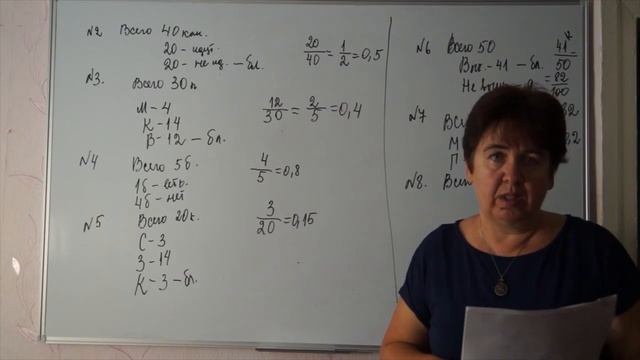 №2 Всего 40 кон.
20 - идут
20 - не ид. - бл.
20/40 = 1/2 = 0,5
№3. Всего 30 п
М - 4
К - 14
В - 12 - бл.
12/30 = 2/5 = 0,4
№4 Всего 5б.
1б - есть
4б - нет
4/5 = 0,8
№5 Всего 20к.
С - 3
З - 14
К - 3 - бл.
3/20 = 0,15
№6 Всего 50
Вып. - 41 - бл.
Не вып
41/50 =
= 82/100
№7 Вс
М
П
№8. Всег